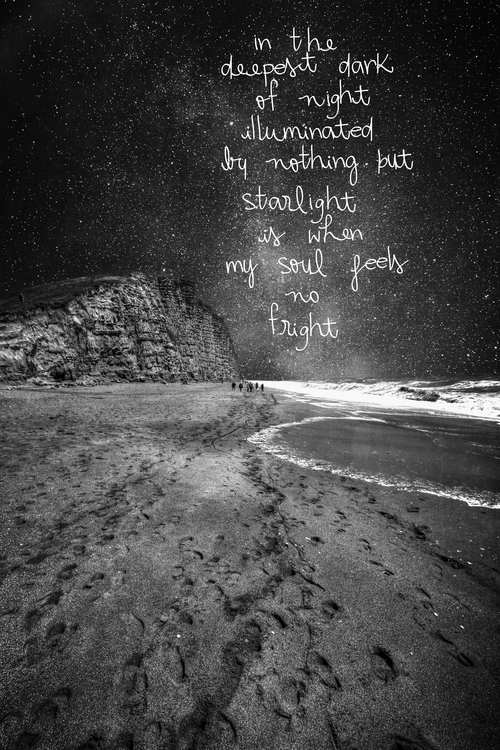 in the
deepest dark
of night
illuminated
by nothing but
starlight
is when
my soul feels
no
fright